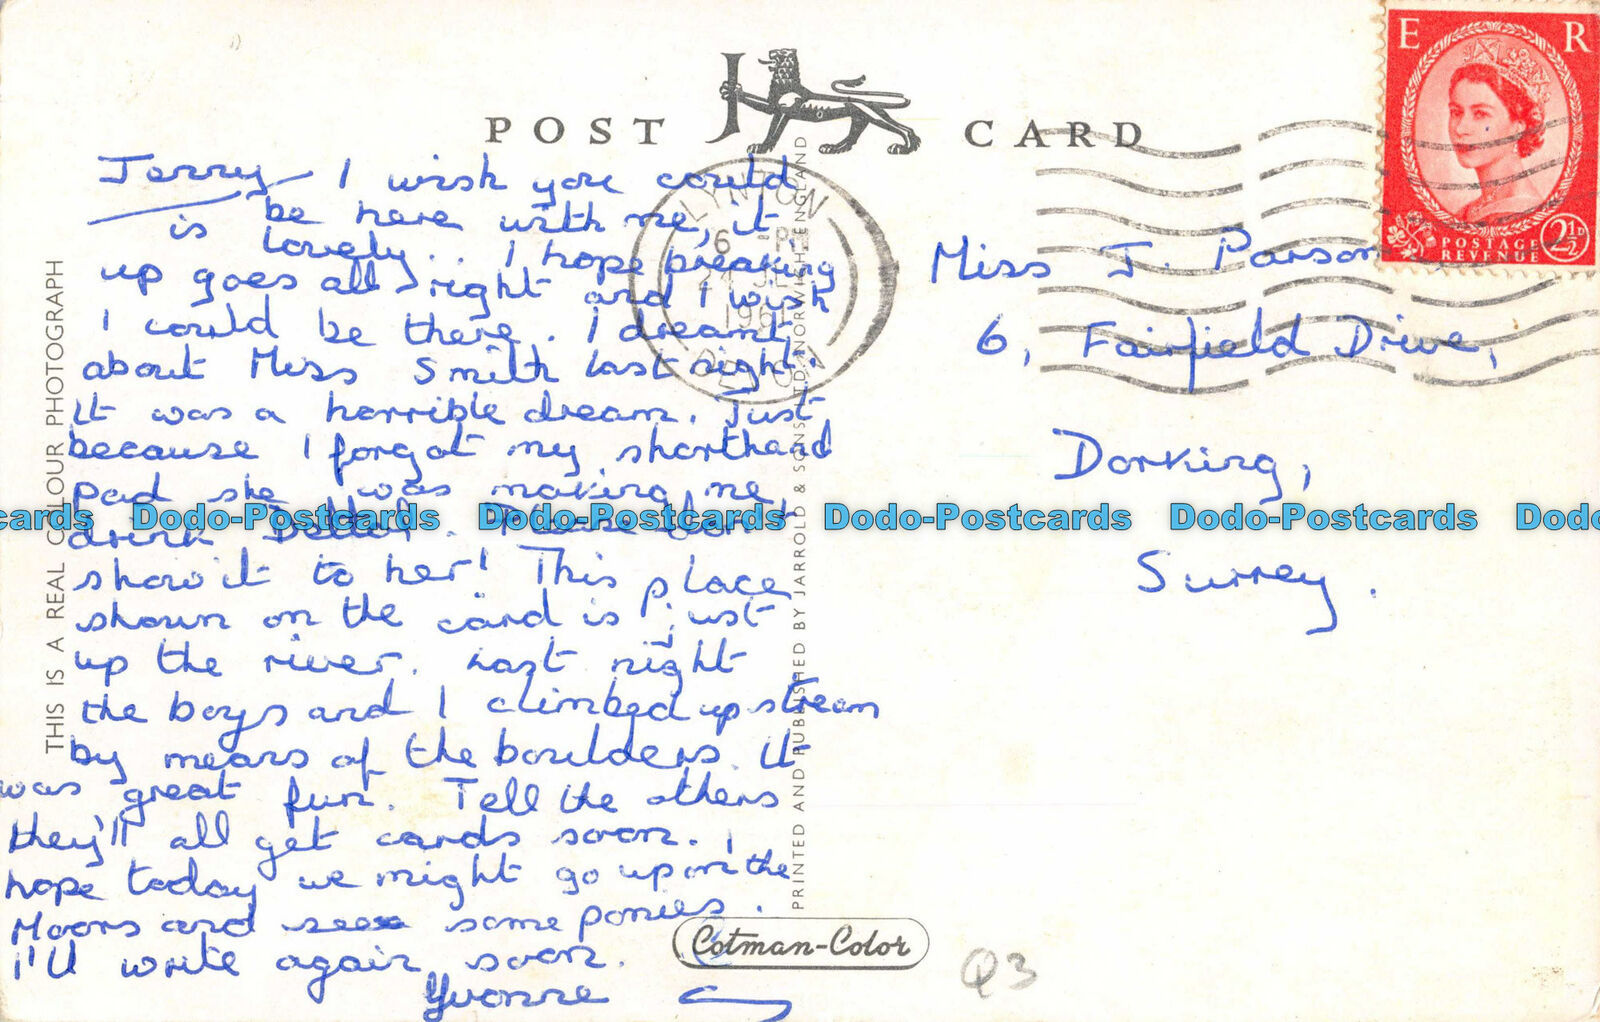 POST CARD
E R
POSTAGE
REVENUE
2½D
LYNTON
6 -PM
24
196
DEVON
Jenny I wish you could
be here with me, it
is lovely... I hope breaking
up goes all right and I wish
I could be there. I dreamt
about Miss Smith last night.
It was a horrible dream. Just
because I forgot my shorthand
pad she was making me
drink Dettol. Please don't
show it to her! This place
shown on the card is just
up the river. Last night
the boys and I climbed up stream
by means of the boulders. It
was great fun. Tell the others
they'll all get cards soon. I
hope today we might go up on the
Moors and see some ponies.
I'll write again soon.
Yvonne
Miss J. Parson
6, Fairfield Drive,
Dorking,
Surrey.
THIS IS A REAL COLOUR PHOTOGRAPH
PRINTED AND PUBLISHED BY JARROLD & SONS LTD. NORWICH ENGLAND
Cotman-Color
Q3
cards Dodo-Postcards Dodo-Postcards Dodo-Postcards Dodo-Postcards Dodo